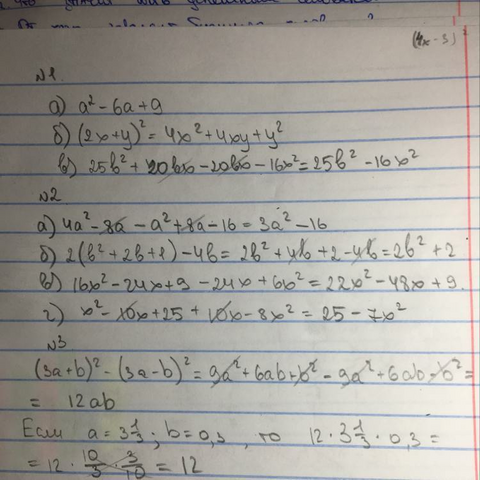 (4x-3)²
№1
а) a² - 6a + 9
б) (2x+y)² = 4x² + 4xy + y²
в) 25b² + 20bx - 20bx - 16x² = 25b² - 16x²
№2
а) 4a² - 8a - a² + 8a - 16 = 3a² - 16
б) 2(b² + 2b + 1) - 4b = 2b² + 4b + 2 - 4b = 2b² + 2
в) 16x² - 24x + 9 - 24x + 6x² = 22x² - 48x + 9.
г) x² - 10x + 25 + 10x - 8x² = 25 - 7x²
№3
(3a+b)² - (3a-b)² = 9a² + 6ab + b² - 9a² + 6ab - b² =
= 12ab
Если a = 3 1/3; b = 0,3, то 12 · 3 1/3 · 0,3 =
= 12 · 10/3 · 3/10 = 12